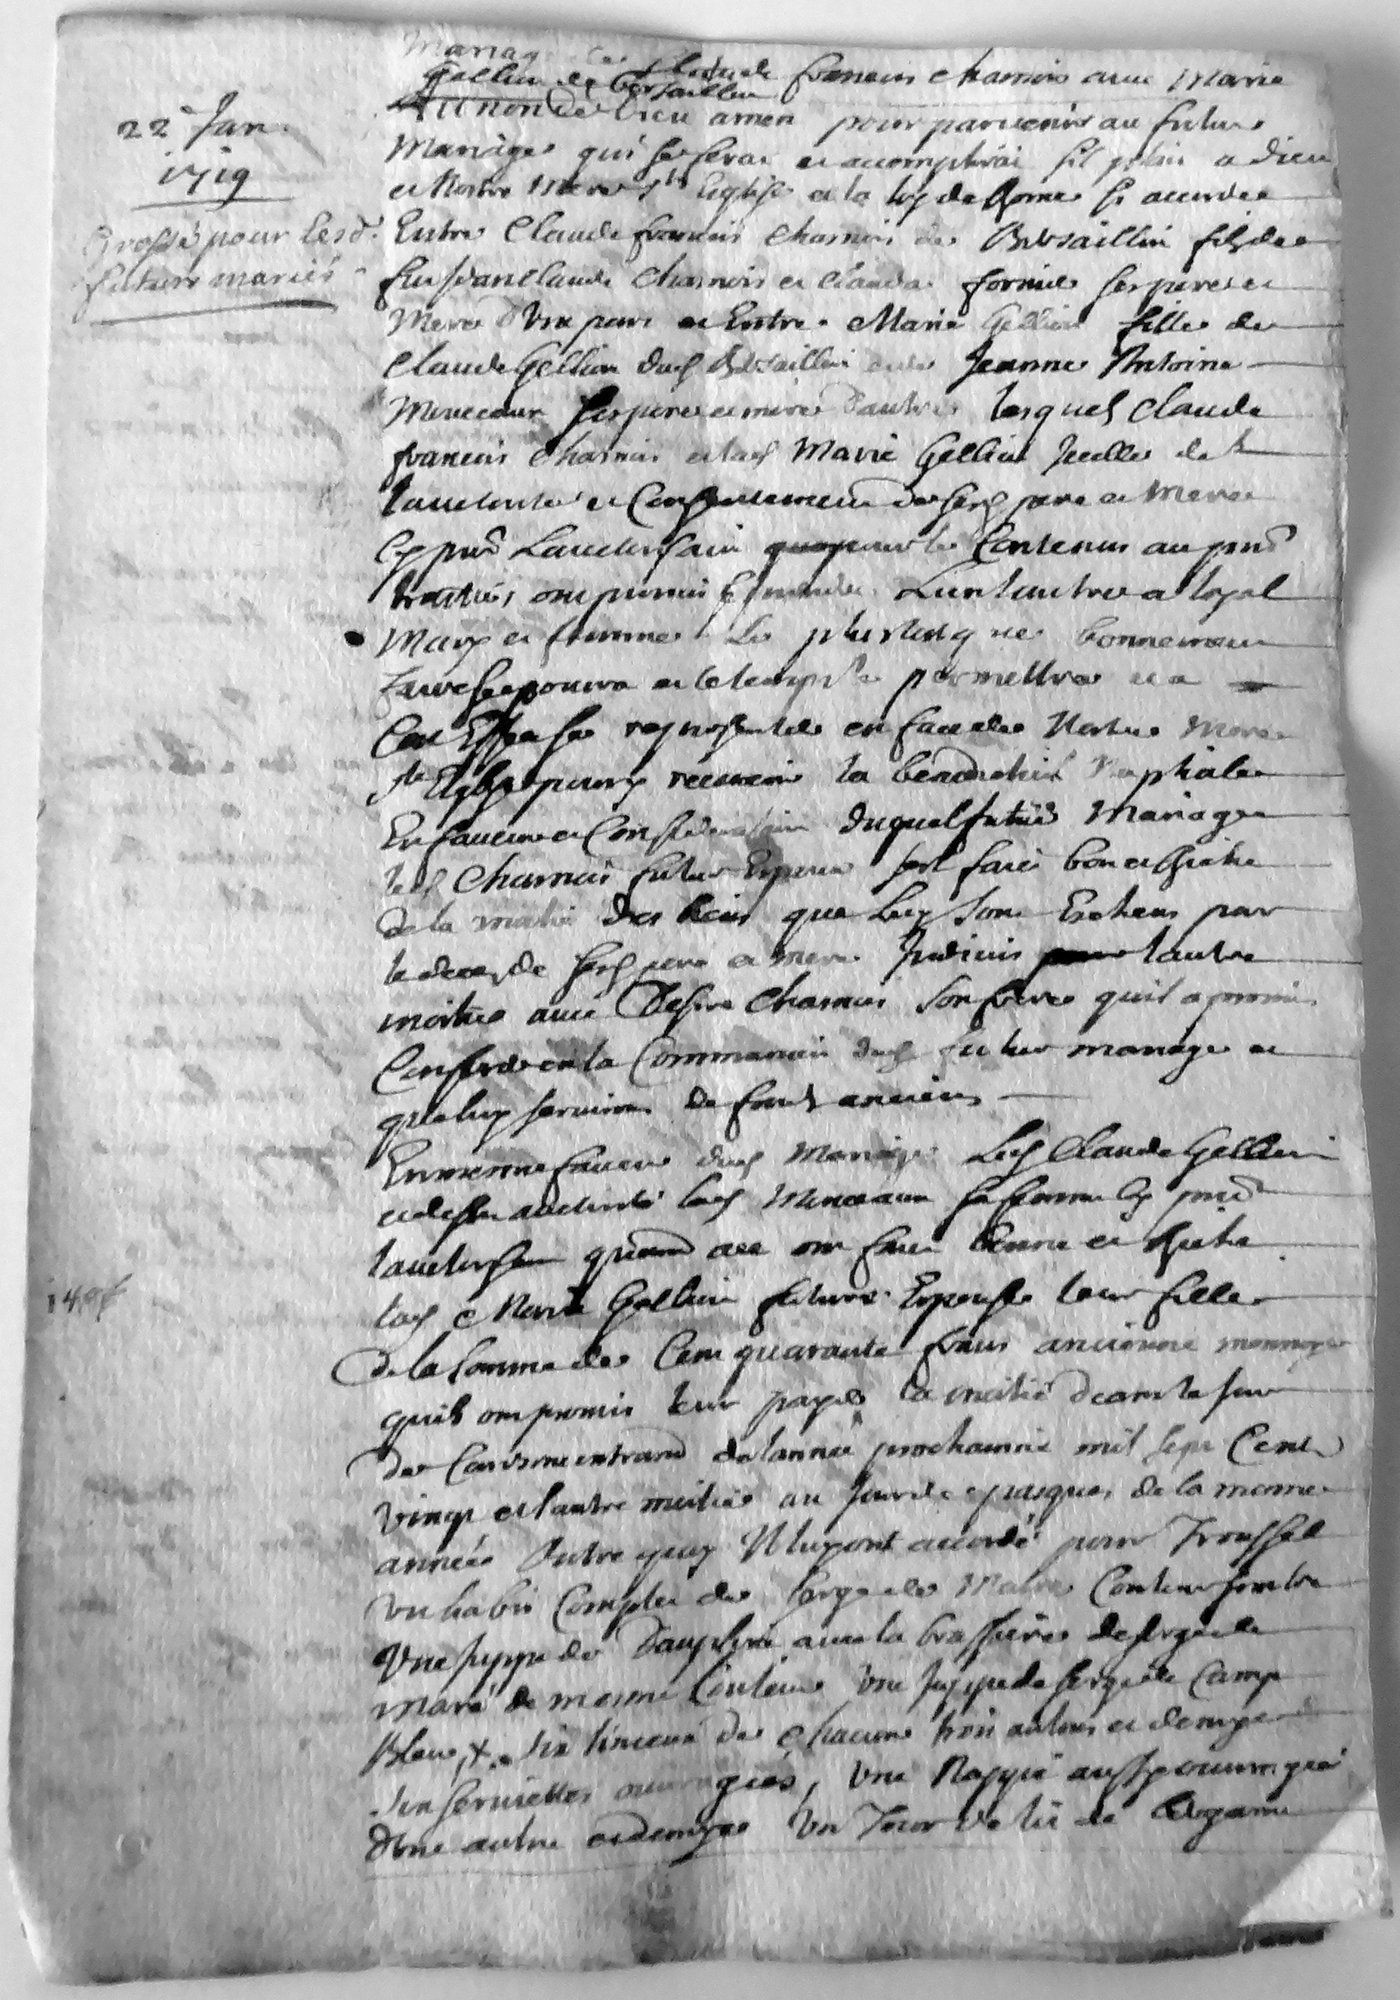 Mariage de Claude francois charnois avec Marie
Gellion de Bersaillin
22e Jan.
1719
Grossé pour lesd.
futurs mariés
Au nom de Dieu amen pour parvenir au futur
Mariage qui se fera et accomplira s'il plait a dieu
et Nostre Mere ste Eglise et la loy de Rome si accorde
Entre Claude francois charnois de Bersaillin fils de
feu Jean Claude charnois et Clauda ses pere et
Mere d'Une part et Entre Marie Gellion fille de
Claude Gellion dud Bersaillin et de Jeanne Antoine
ses pere et mere d'autre lesquels Claude
francois charnois et lad Marie Gellion Icelle de
l'autorite et Consentement de sesd pere et Mere
Cy pnt Lauthorisant pour le Contenu au pnt
traitté, ont promis prendre Lun lautre a loyal
Mary et femme Le plustost que bonnement
faire se poura et le temps le permettra et a
Cest Effect se representer en face de Nostre Mere
ste Eglise pour y recevoir la benediction Nuptiale
En faveur et Consideration duquel futur Mariage
led Charnois futur Espoux s'est fait bon et Riche
de la moitié des biens que luy sont Escheus par
le deces de sesd pere et mere Indivis lautre
moitié avec Charnois son frere quil a promis
Confondre en la Communion dud futur mariage et
que luy serviront de fond ancien
En mesme faveur dud Mariage Led Claude Gellion
et de son authorité lad sa femme Cy pnte
lauthorisan quand ace ont fait bonne et Riche
lad Marie Gellion future Espouse leur fille
1401
de la somme de Cent quarante frans ancienne monnoye
quils ont promis leur payer la moitié dans le jour
de Caresmentrand de lannée prochainne mil sept Cent
vingt et lautre moitié au jour de pasques de la mesme
année Outre quoy Il luy ont accordé pour Troussel
Un habit Complet de serge de Couleur
Une juppe de Dauphine avec la brassiere de serge de
de mesme Couleur Une juppe de serge de Camp
Bleu, x six linceux de chacune trois aulnes et demye
six serviettes ouvragées, Une Nappe aussy ouvragée
d'Une aulne et demye Un Tour de lit de